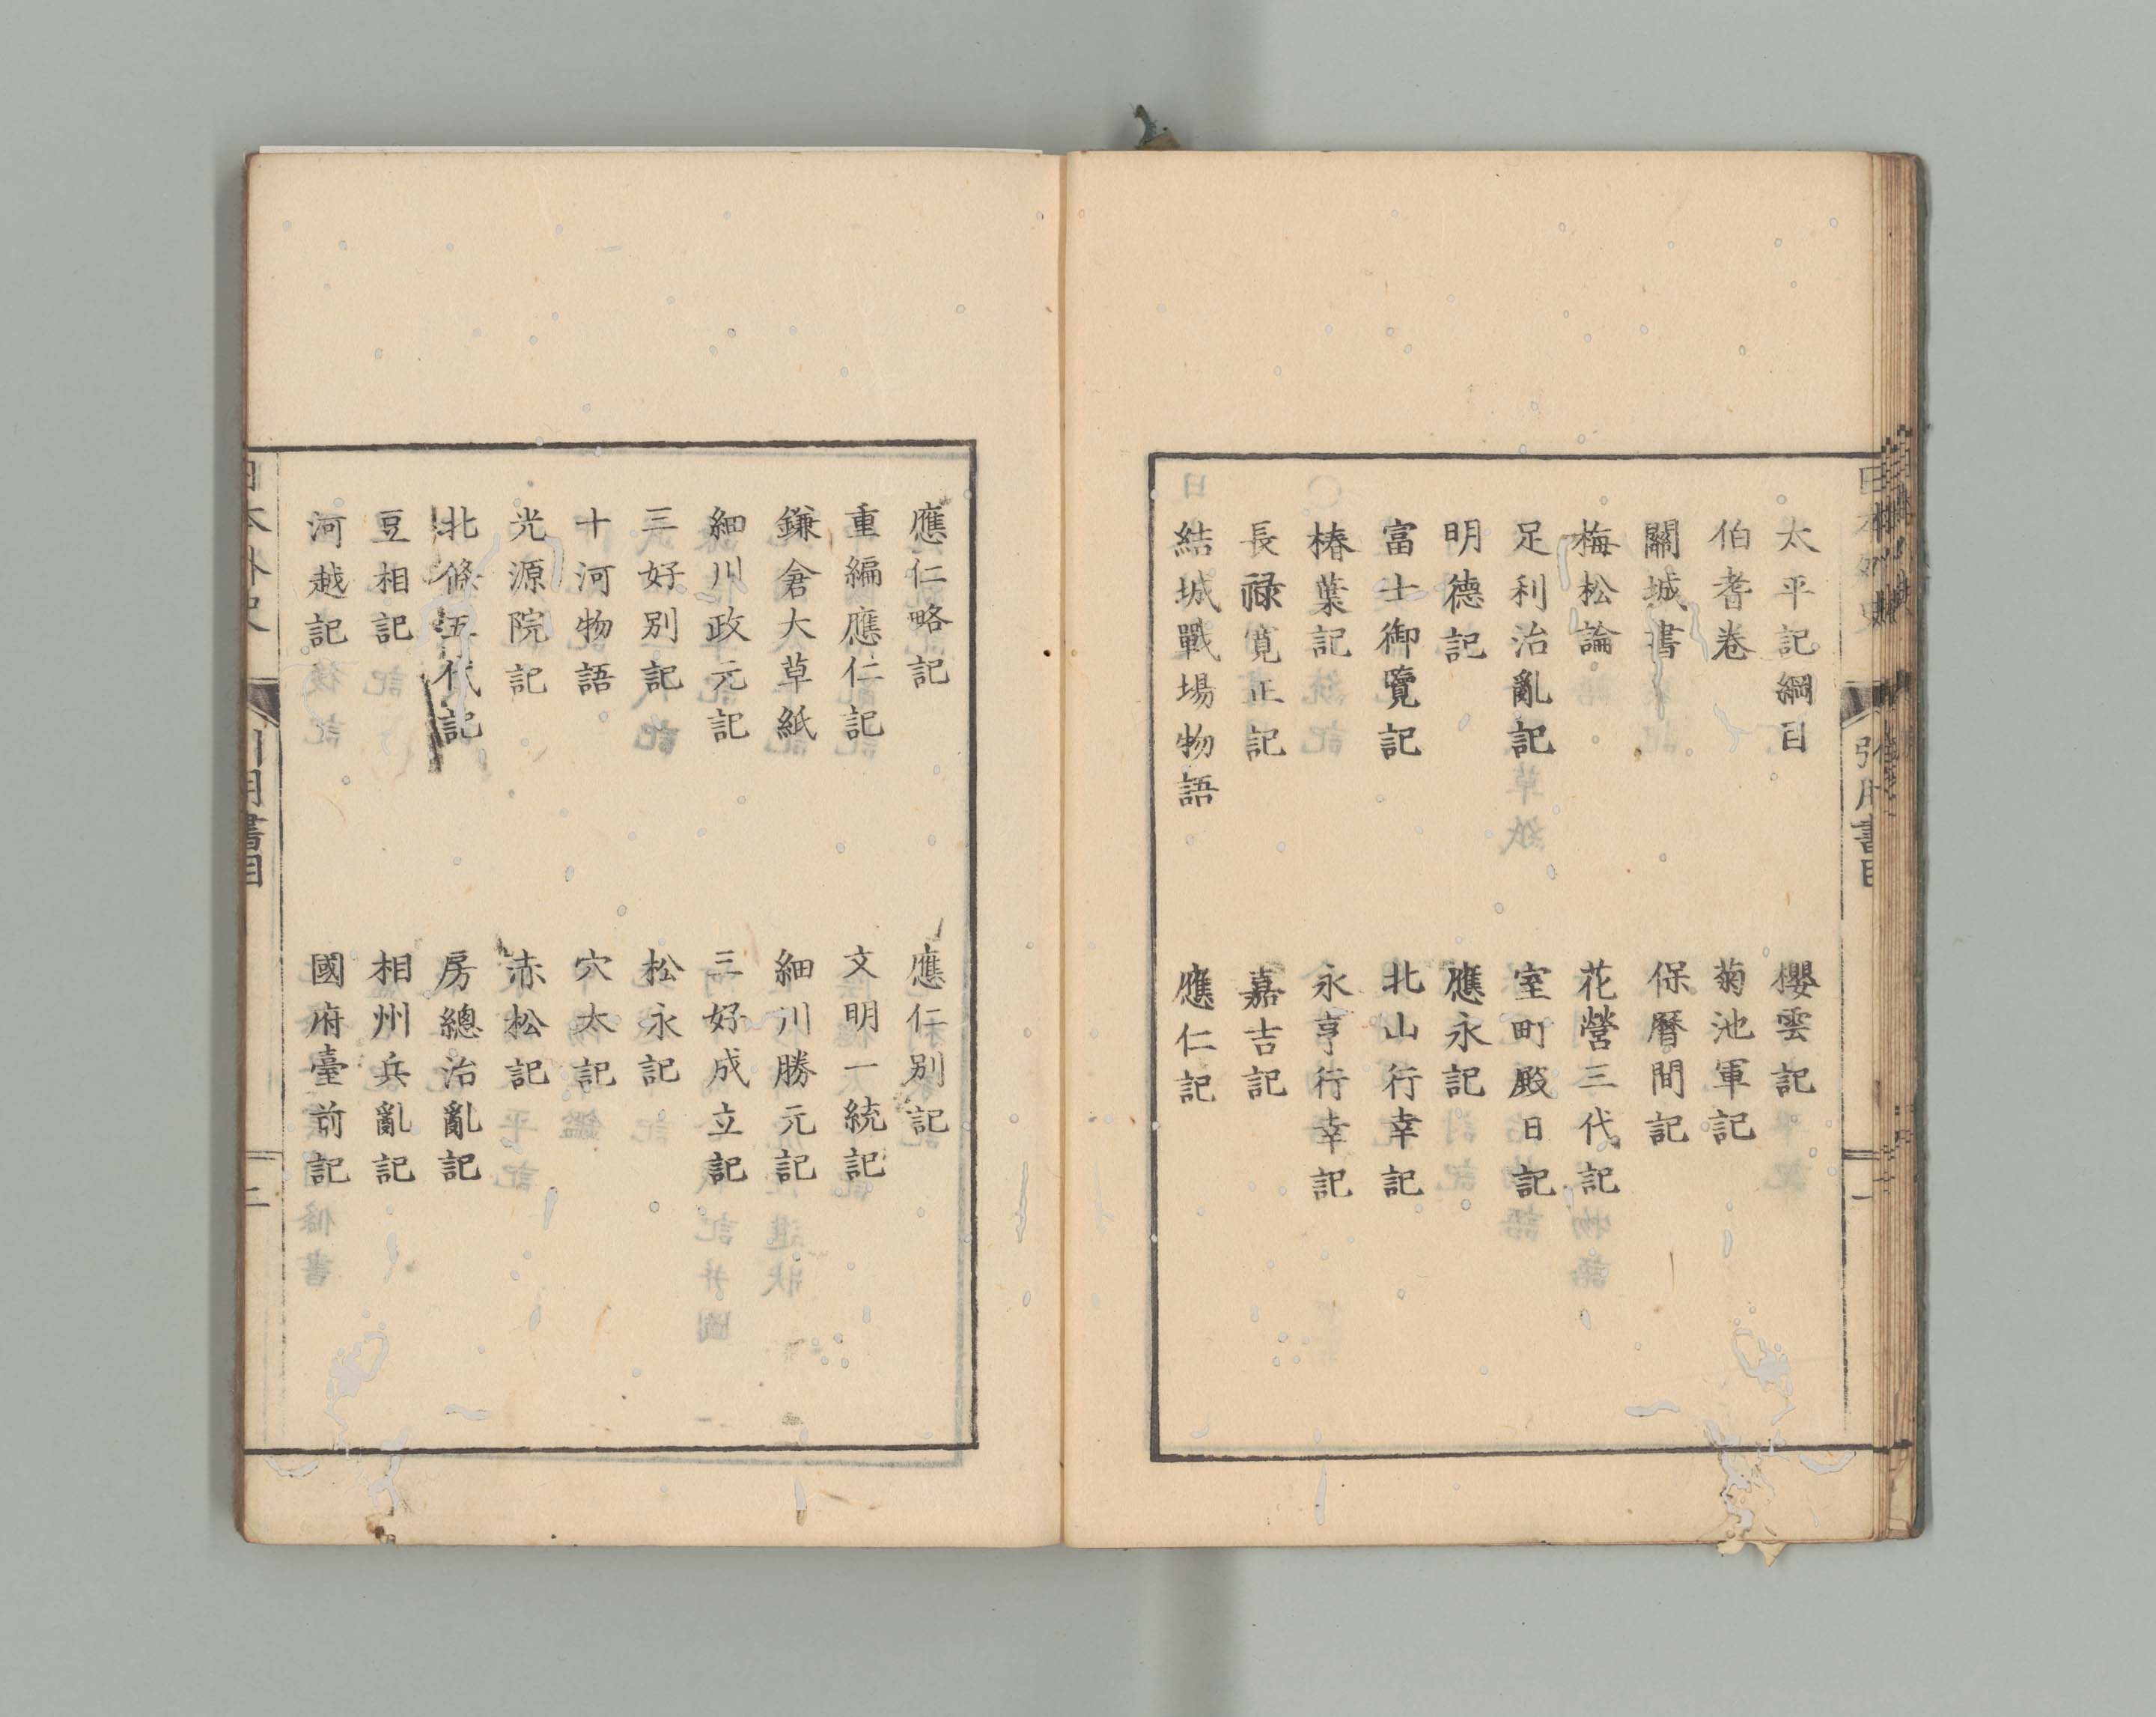 太平記綱目　櫻雲記
伯耆卷　菊池軍記
關城書　保曆間記
梅松論　花營三代記
足利治亂記　室町殿日記
明德記　應永記
富士御覽記　北山行幸記
椿葉記　永享行幸記
長祿寬正記　嘉吉記
結城戰場物語　應仁記
應仁略記　應仁別記
重編應仁記　文明一統記
鎌倉大草紙　細川勝元記
細川政元記　三好成立記
三好別記　松永記
十河物語　穴太記
光源院記　赤松記
北條五代記　房總治亂記
豆相記　相州兵亂記
河越記　國府臺前記
引用書目
二